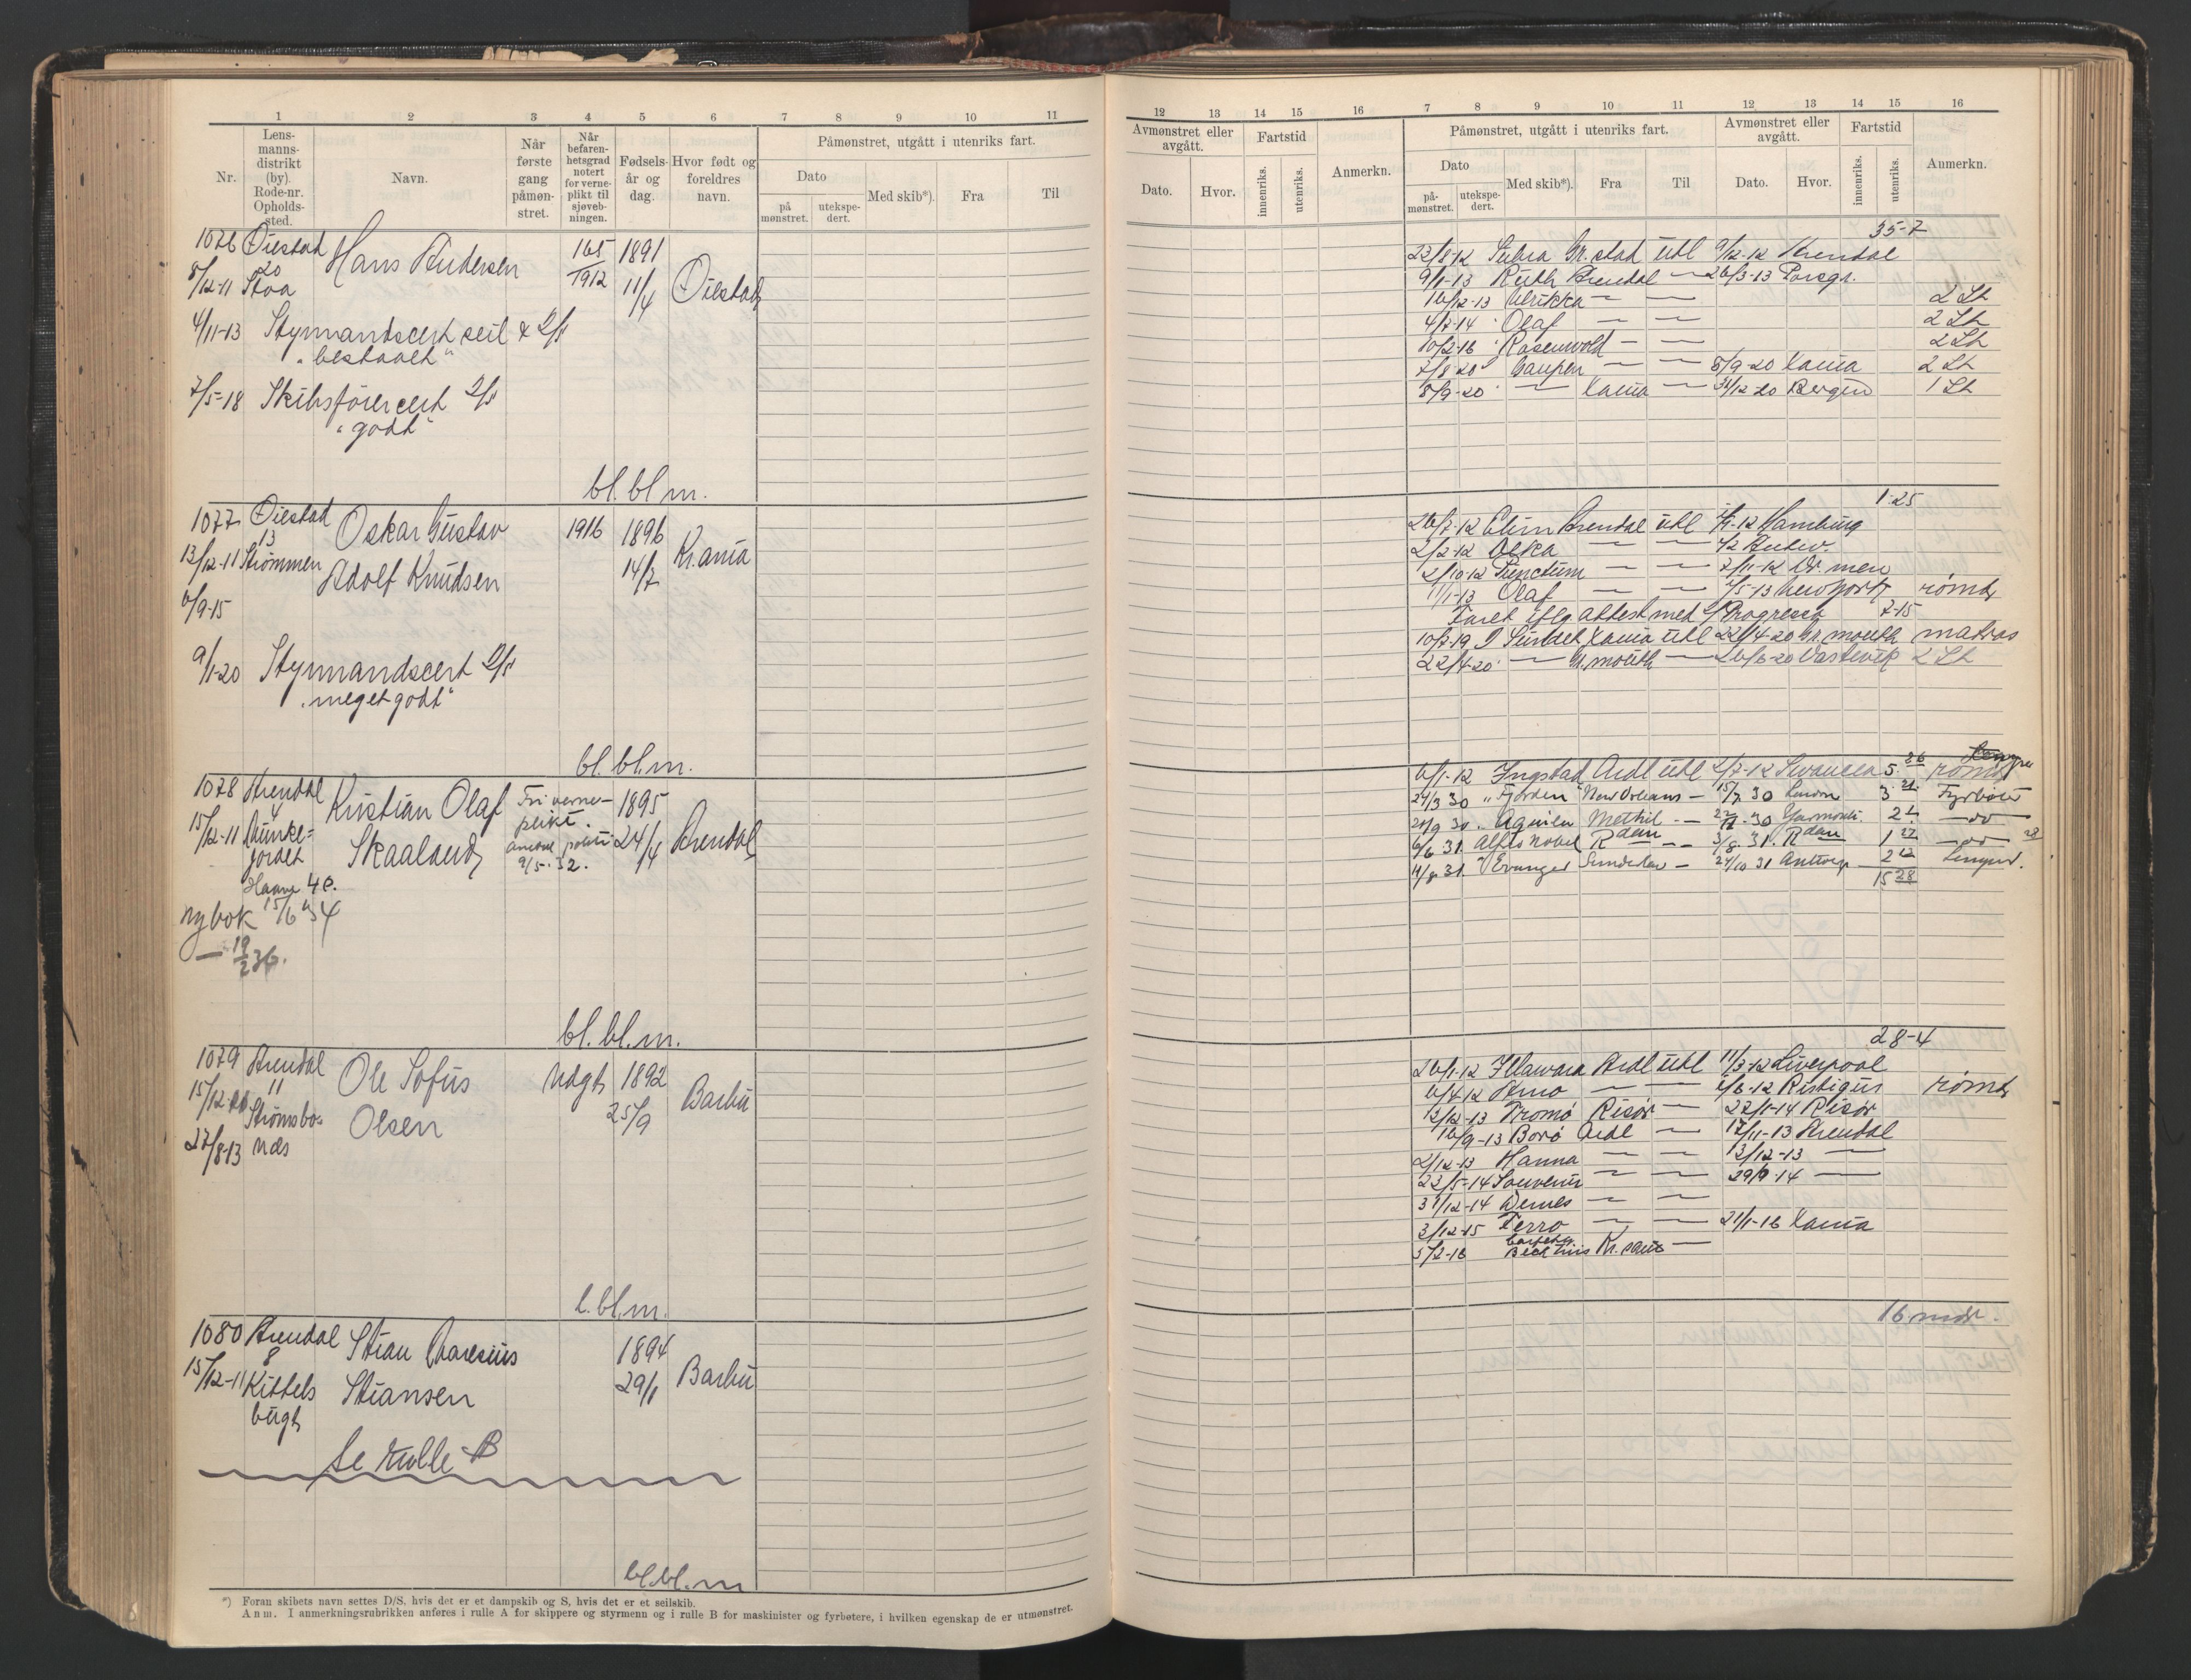 1 2 3 4 5 6 7 8 9 10 11
Nr.
Lens-
manns-
distrikt
(by).
Rode-nr.
Opholds-
sted.
Navn.
Når
første
gang
påmøn-
stret.
Når
befaren-
hetsgrad
notert
for verne-
plikt til
sjøveb-
ningen.
Fødsels-
år og
dag.
Hvor født og
foreldres
navn.
Påmønstret, utgått i utenriks fart.
Dato
på
mønstret.
utekspe-
dert.
Med skib*).
Fra
Til
1076 Øiestad Hans Andersen 165/1912 1891
8/12-11 20 Stoa 11/4 Øiestad
4/11-13 Styrmandscert seil & D/s
"bestaaelt"
7/5-18 Skibsførercert D/s
"godt"
bl. bl m.
1077 Øiestad Oskar Gustav 1916 1896
13
13/12-11 Strømmen Adolf Knudsen 14/7 Kr.ania
6/9-15
9/1-20 Styrmandscert D/s
"meget godt"
bl. bl. m.
1078 Arendal Kristian Olaf Fri verne- 1895
4 plikt.
15/12-11 Munke- Skaaland Arendal politi 24/4 Arendal
jordet 9/5-32.
Haave 4 e.
ny bok 15/6 34
— 19/2 36.
bl. bl. m.
1079 Arendal Ole Sofus Udgt 1892
11
15/12-11 Strømsbo- Olsen 25/9 Barbu
27/8-13 nes
l. bl. m.
1080 Arendal Stian Charesius 1894
8
15/12-11 Kittels Stiansen 29/1 Barbu
bugt
Se rulle B
bl. bl. m
*) Foran skibets navn settes D/S, hvis det er et dampskib og S, hvis det er et seilskib.
Anm. I anmerkningsrubrikken anføres i rulle A for skippere og styrmenn og i rulle B for maskinister og fyrbøtere, i hvilken egenskap de er utmønstret.
12 13 14 15 16 7 8 9 10 11 12 13 14 15 16
Avmønstret eller
avgått.
Dato.
Hvor.
Fartstid
innenriks.
utenriks.
Anmerkn.
Påmønstret, utgått i utenriks fart.
Dato
på-
mønstret.
utekspe-
dert.
Med skib*).
Fra
Til
Avmønstret eller
avgått.
Dato.
Hvor.
Fartstid
innenriks.
utenriks.
Anmerkn.
35-7
22/8-12 Gr.stad utl 9/12-12 Arendal
9/1-13 Ruth Arendal — 26/3-13 Porsgr.
16/12-13 Ulrikka — — 2 St
4/7-14 Olaf — — 2 St
10/2-16 Rosenvold — — 2 St
7/8-20 Gaupen — — 8/9-20 Xania 2 St
8/9-20 — Xania — 31/12-20 Bergen 1 St
1-25
26/7-12 Elim Arendal utl Hamburg
2/2-12 — —
2/10-12 Punctum — — 2/11-12 Dr.men
11/1-13 Olaf — — 2/5-13 Newport rømt
Faret iflg attest med S/ Progress 7-15
10/7-19 Xania utl 22/4-20 Gr.mouth matros
22/4-20 — Gr.mouth — 26/6-20 Vastevik 2 St
6/1-12 Ingstad Ardl utl 2/7-12 Swansea 5.26 rømt
24/3 30 "Fjorden" New Orleans — 15/7 30 London 3 21 Fyrbøter
24/9 30 Aguila Methil — 22/11.30 Yarmouth. 2 — do —
6/6 31 Alfred Nobel Rdam — 3/8.31. Rdam 1 27 — do —
11/8 31. Evanger Sunderland — 24/10 31 Antwerp 2 12 Lemper.
15 28
28-4
26/1-12 Illawara Ardl utl 11/3-12 Liverpool
6/4-12 Arno — — 2/6-12 Ristigus rømt
13/12-13 Tromø Risør — 22/1-14 Risør
16/9-13 Borø Ardl — 17/11-13 Arendal
2/12-13 Hanna — — 12/12-13 —
23/5-14 Souvenir — — 29/9-14 —
31/12-14 — —
3/12-15 Terro — — 21/1-16 Xania
5/2-16 Kr.sand —
16 mdr.